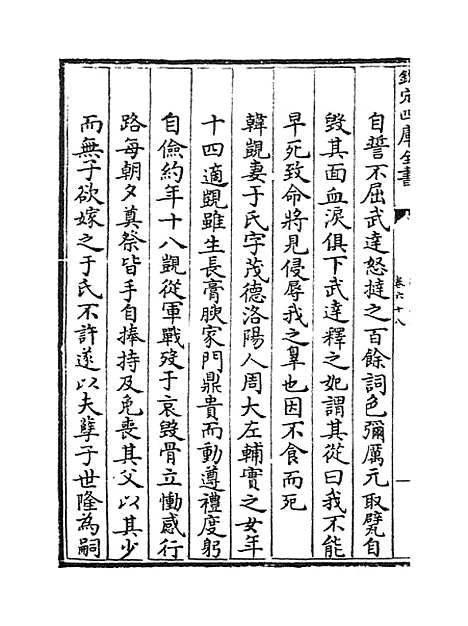 欽定四庫全書
卷六十八
自誓不屈武達怒撻之百餘詞色彌厲元取甓自
毀其面血淚俱下武達釋之妃謂其從曰我不能
早死致命將見侵辱我之辠也因不食而死
韓覬妻于氏字茂德洛陽人周大左輔實之女年
十四適覬雖生長膏腴家門鼎貴而動遵禮度躬
自儉約年十八覬從軍戰歿于哀毀骨立慟感行
路每朝夕奠祭皆手自捧持及免喪其父以其少
而無子欲嫁之于氏不許遂以夫孽子世隆為嗣